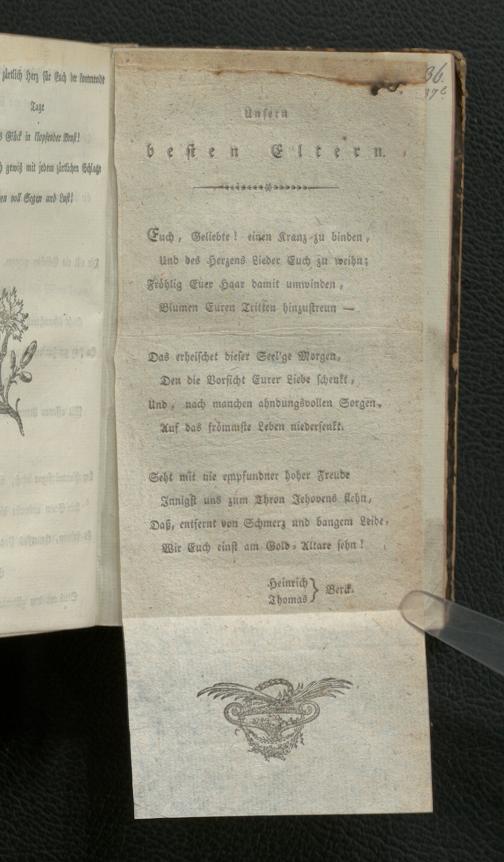 zärtlich Herz für Euch der kommende
Tage
Glück in klopfender Brust!
gewiß mit jedem zärtlichen Schlage
voll Segen und Lust!
36.
Unsern
besten Eltern.
Euch, Geliebte! einen Kranz zu binden,
Und des Herzens Lieder Euch zu weihn;
Fröhlig Euer Haar damit umwinden,
Blumen Euren Tritten hinzustreun —
Das erheischet dieser Seel'ge Morgen,
Den die Vorsicht Eurer Liebe schenkt,
Und, nach manchen ahndungsvollen Sorgen,
Auf das frömmste Leben niedersenkt.
Seht mit nie empfundner hoher Freude
Innigst uns zum Thron Jehovens flehn,
Daß, entfernt von Schmerz und bangem Leide,
Wir Euch einst am Gold-Altare sehn!
Heinrich
Thomas } Berck.